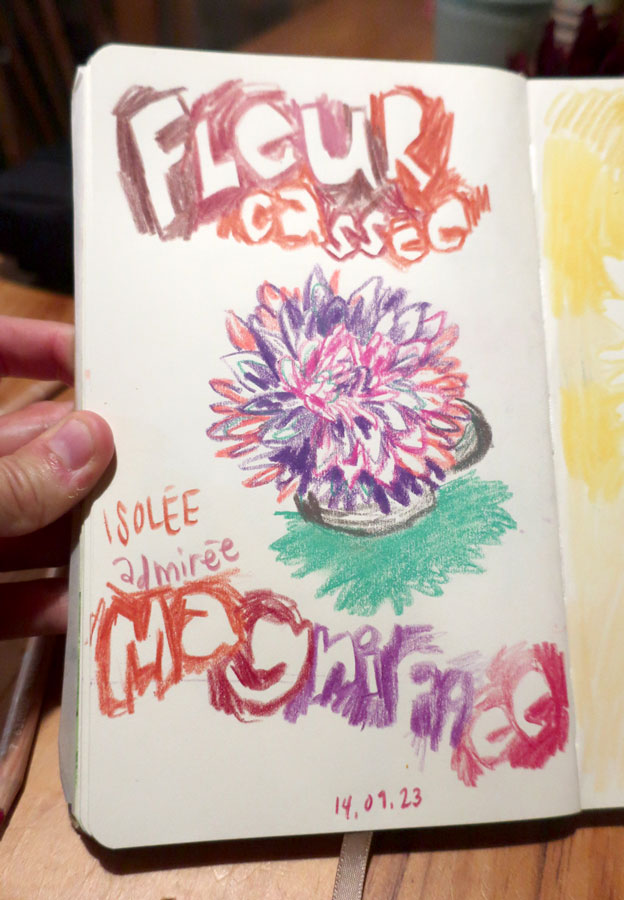 FLeUR
cassée
ISOLÉE
admirée
14.09.23